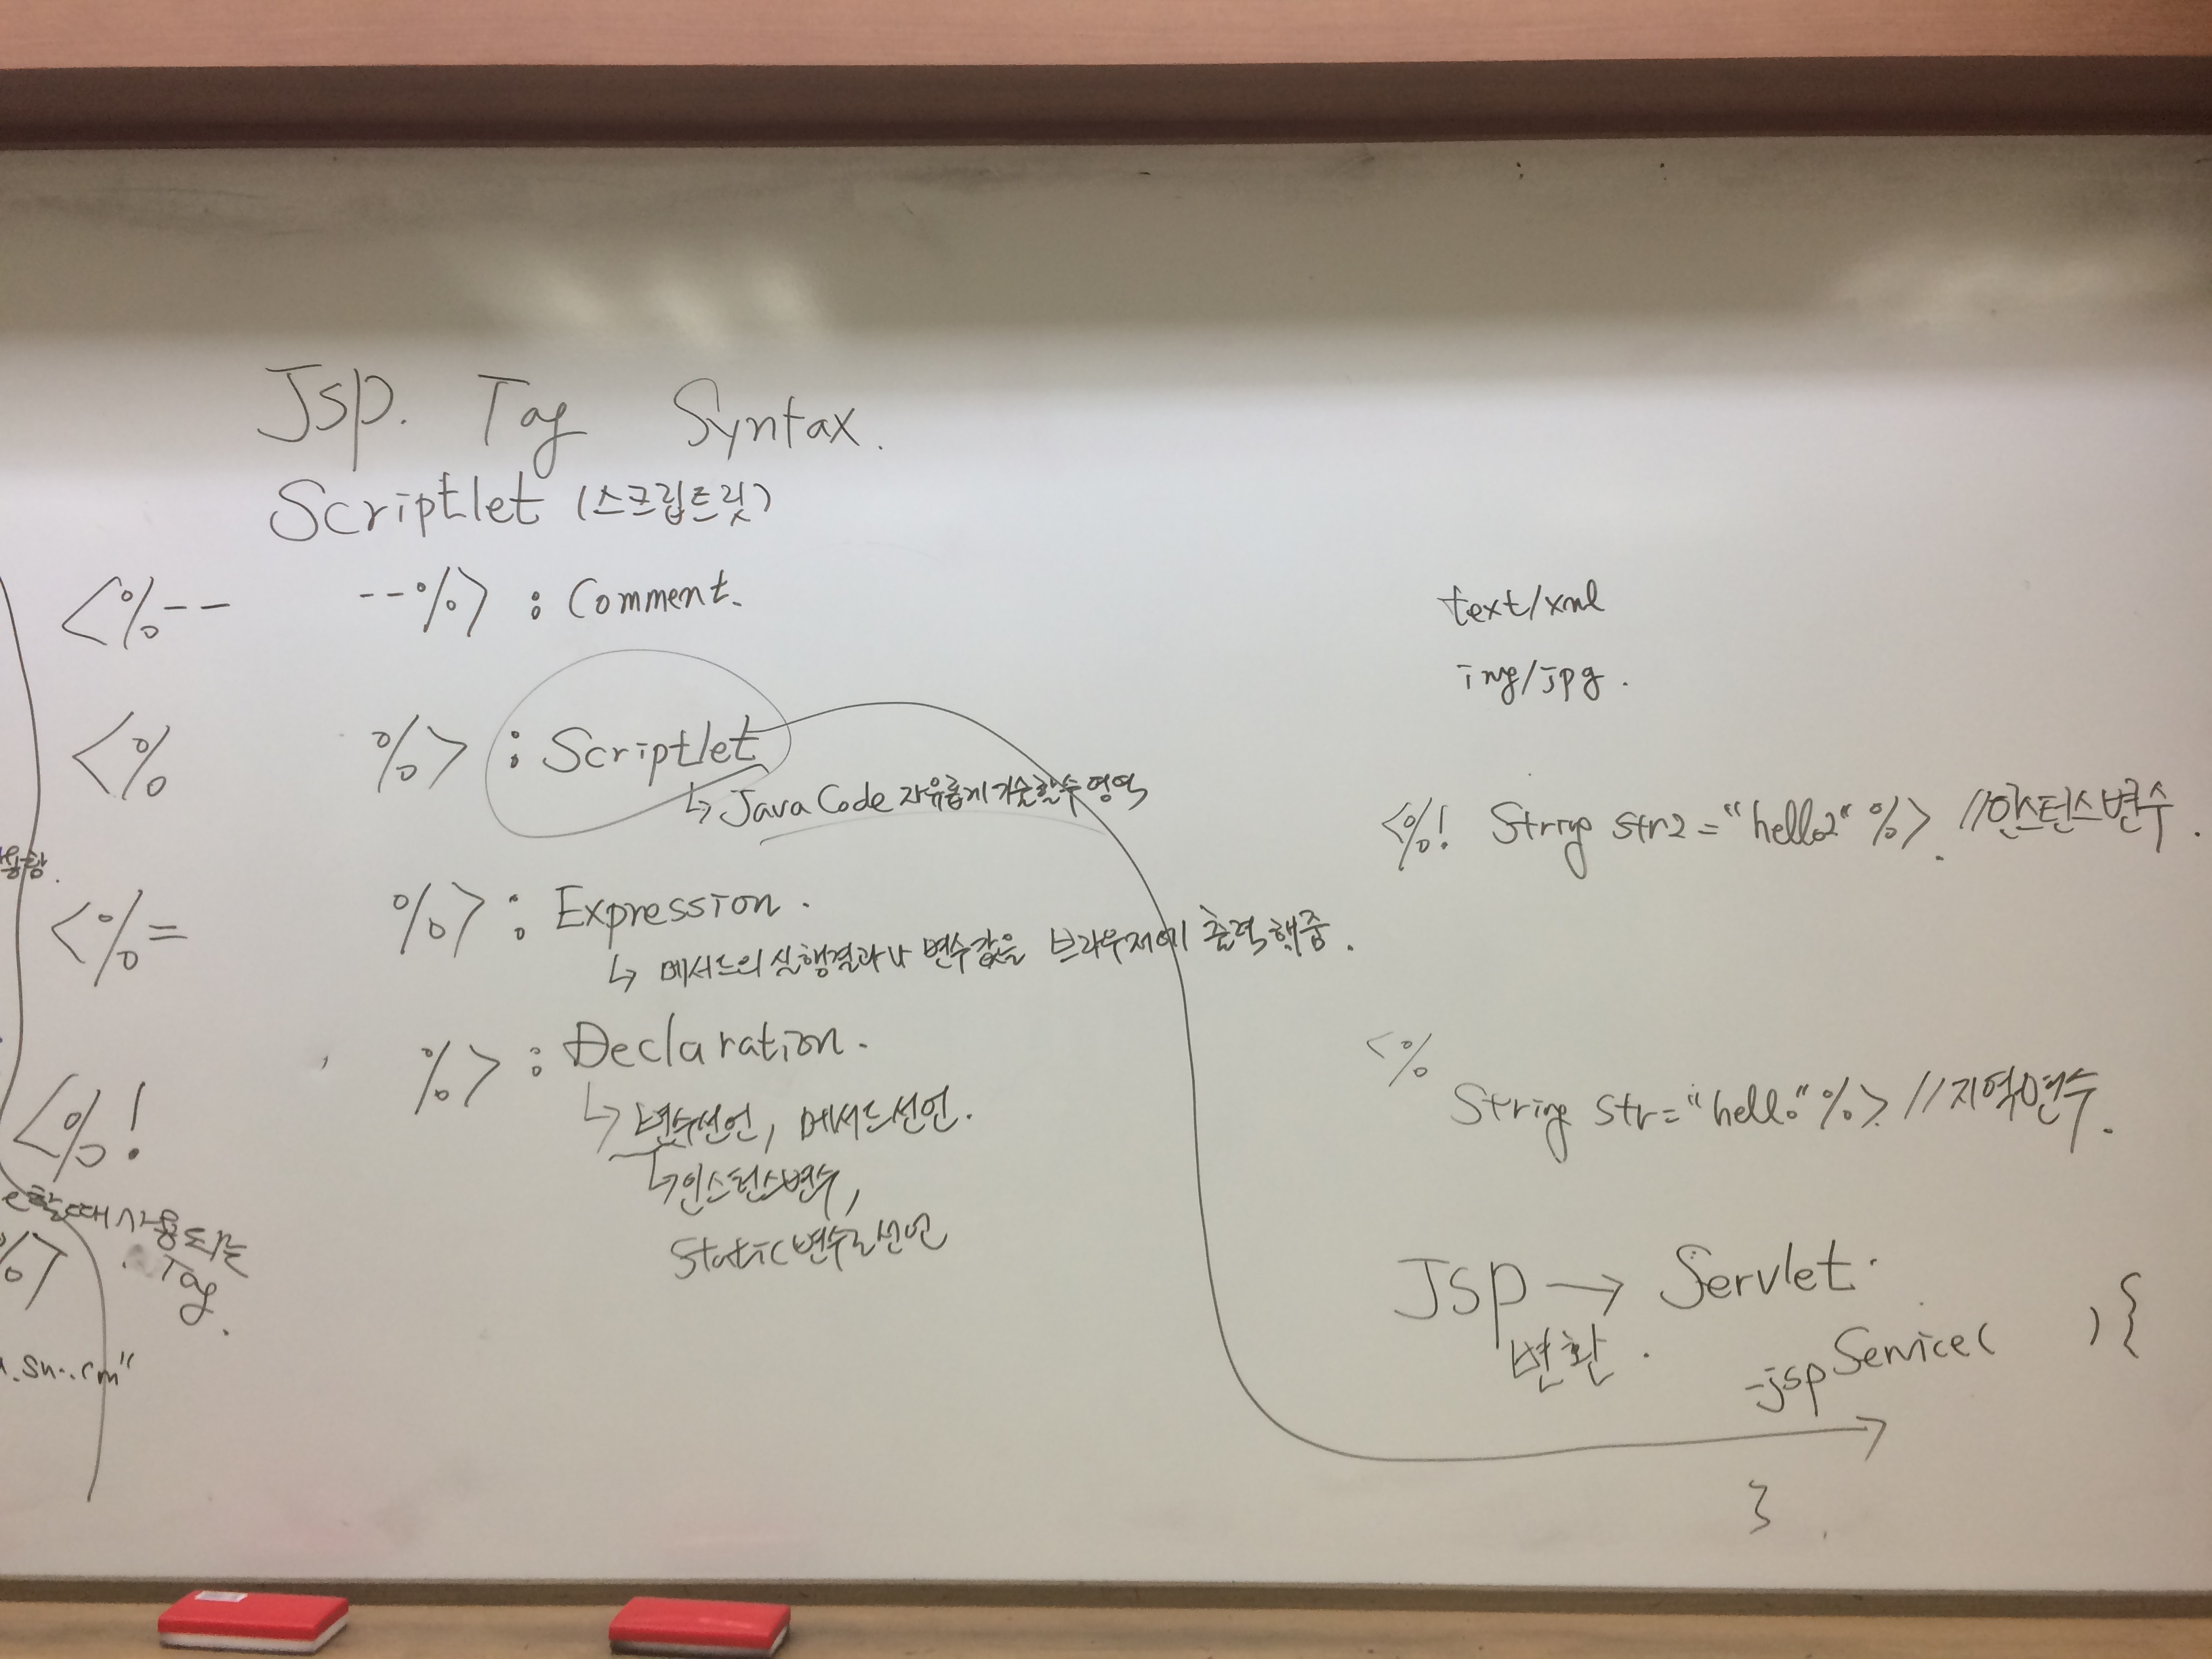 Jsp. Tag Syntax.
Scriptlet (스크립트릿)
<%-- --%> : Comment.
<% %> : Scriptlet
↳ Java Code 자유롭게 기술할수 영역
<%= %> : Expression.
↳ 메서드의 실행결과나 변수값을 브라우저에 출력해줌.
<%! %> : Declaration.
↳ 변수선언, 메서드선언.
↳ 인스턴스변수,
Static변수로선언
용함.
e할때 사용되는
%>
Tag.
text/xml
img/jpg.
<%! String str2 = "hello2" %>. //인스턴스변수.
<%
String str = "hello" %> //지역변수.
JSP → Servlet.
변환.
_jspService( ) {
}